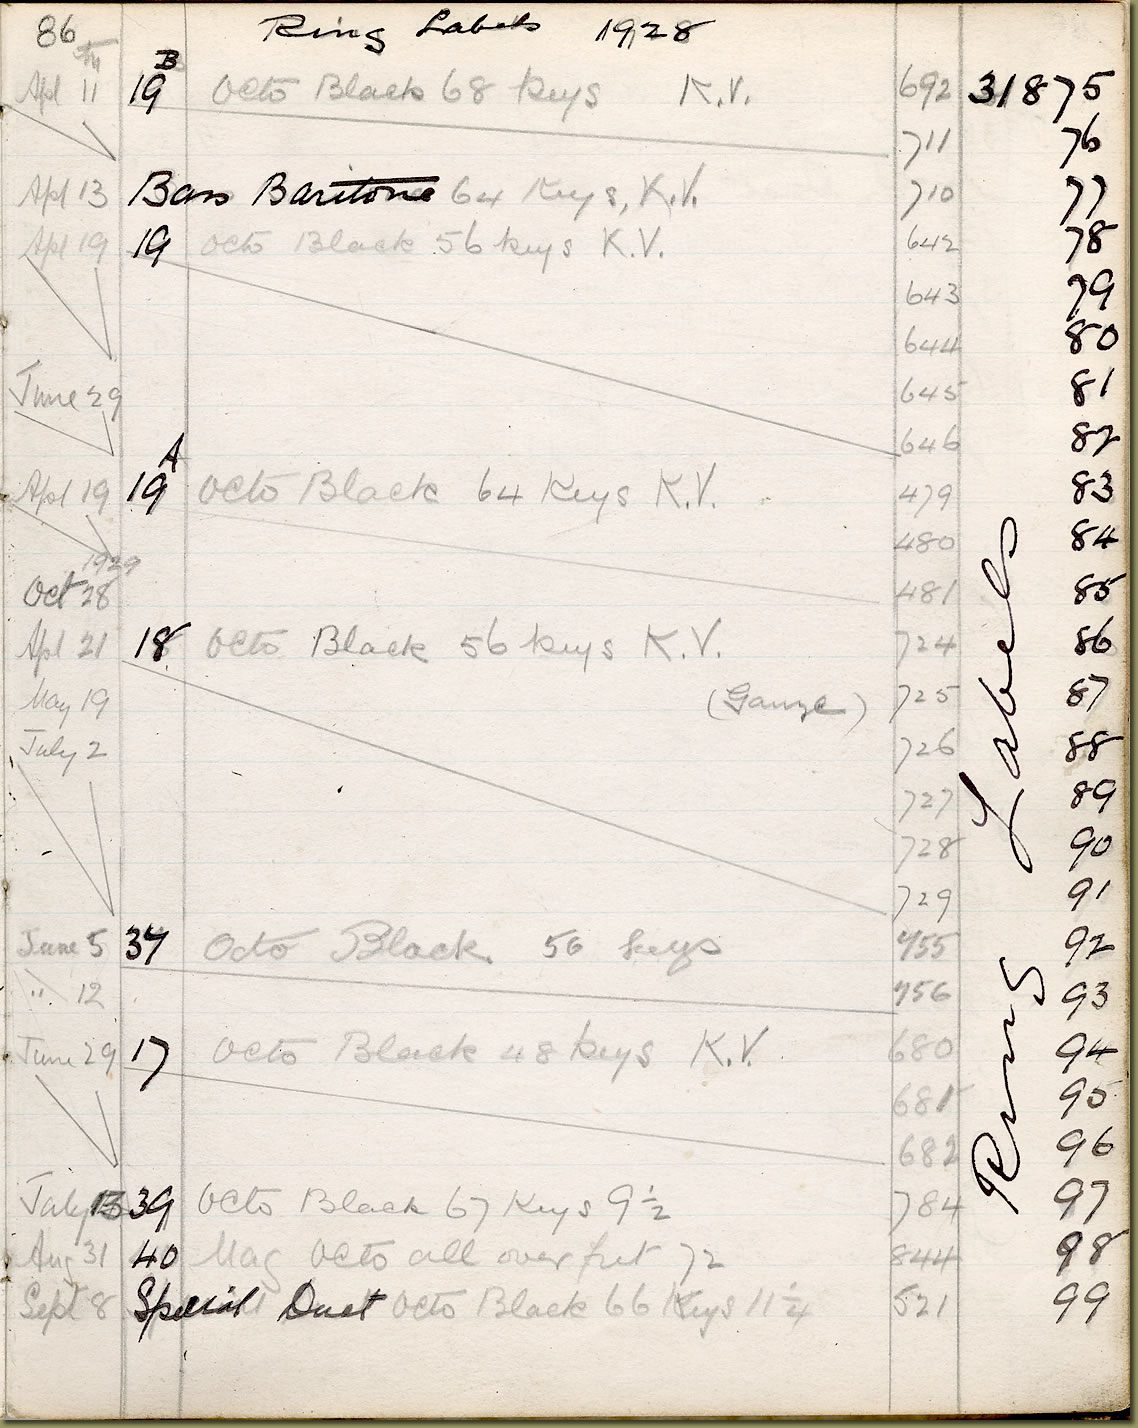 86 Ring Labels 1928
B
Apl 11 19 Octo Black 68 Keys K.V. 692 31875
711 76
Apl 13 Bass Baritone 64 Keys, K.V. 710 77
Apl 19 19 Octo Black 56 Keys K.V. 642 78
643 79
644 80
June 29 645 81
646 82
A
Apl 19 19 Octo Black 64 Keys K.V. 479 83
480 84
1929
Oct 28 481 85
Apl 21 18 Octo Black 56 Keys K.V. 724 86
May 19 (Gauze) 725 87
July 2 726 88
727 89
728 90
729 91
June 5 34 Octo Black 56 Keys 755 92
" 12 756 93
June 29 17 Octo Black 48 Keys K.V. 680 94
681 95
682 96
July 13 39 Octo Black 67 Keys 9½ 784 97
Aug 31 40 Mag Octo all over fret 72 844 98
Sept 8 Special Duet Octo Black 66 Keys 11¼ 521 99
Ring Labels